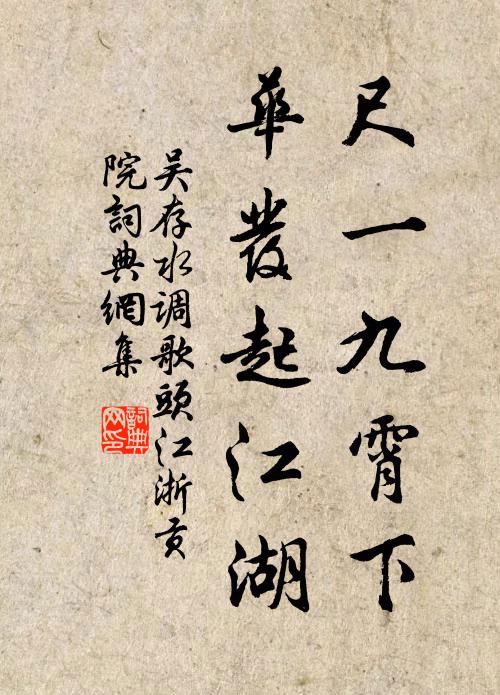 尺一九霄下
華發起江湖
吴存水调歌頭江浙贡
院詞典網集
詞典網印